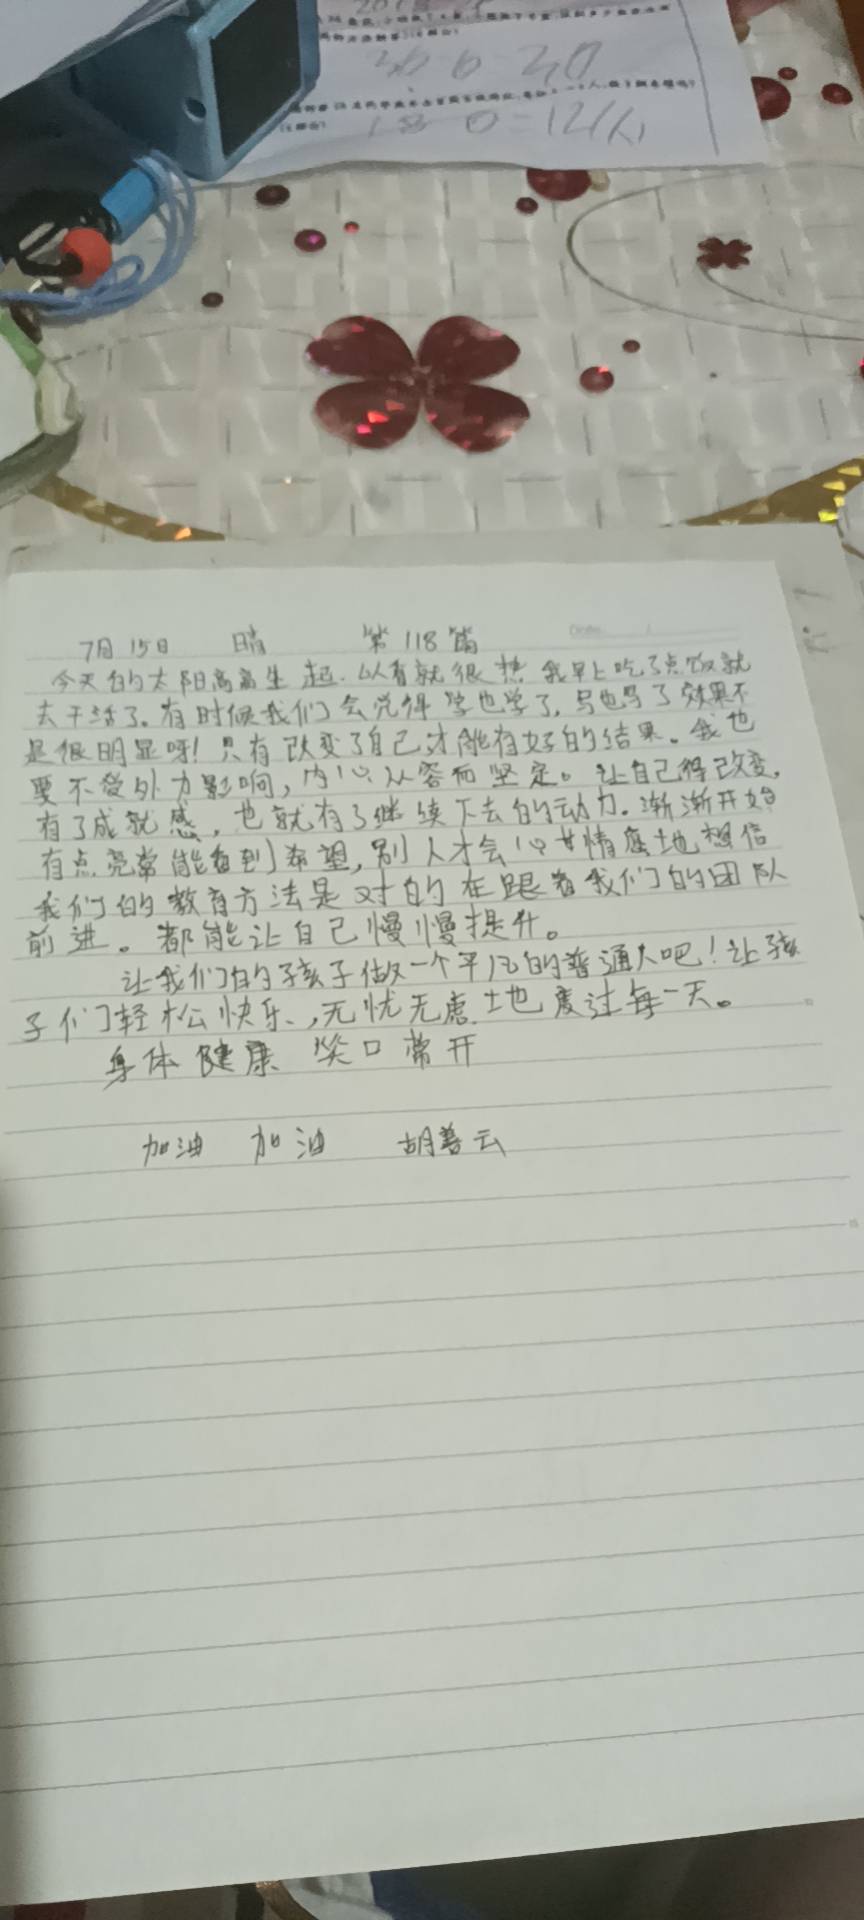 30 6 30
18 0=12(人)
7月15日 晴 第118篇
今天的太阳高高生起.以看就很热 我早上吃了点饭就
去干活了。有时候我们会觉得学也学了,写也写了效果不
是很明显呀!只有改变了自己才能有好的结果。我也
要不受外力影响,内心从容而坚定。让自己得改变,
有了成就感,也就有了继续下去的动力。渐渐开始
有点亮常能看到希望,别人才会心甘情愿地相信
我们的教育方法是对的在跟着我们的团队
前进。都能让自己慢慢提升。
让我们的孩子做一个平凡的普通人吧!让孩
子们轻松快乐、,无忧无虑地度过每一天。
身体健康 笑口常开
加油 加油 胡普云